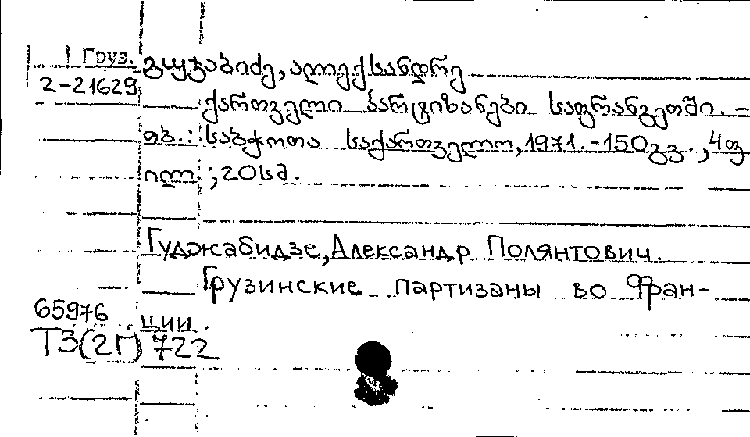 Груз.
2-21629
გუჯაბიძე, ალექსანდრე
ქართველი პარტიზანები საფრანგეთში. -
თბ.: საბჭოთა საქართველო, 1971. - 150გვ., 4ფ
ილ.; 20სმ.
Гуджабидзе, Александр Полянтович.
Грузинские партизаны во Фран-
ции.
65976
ТЗ(2Г) 722